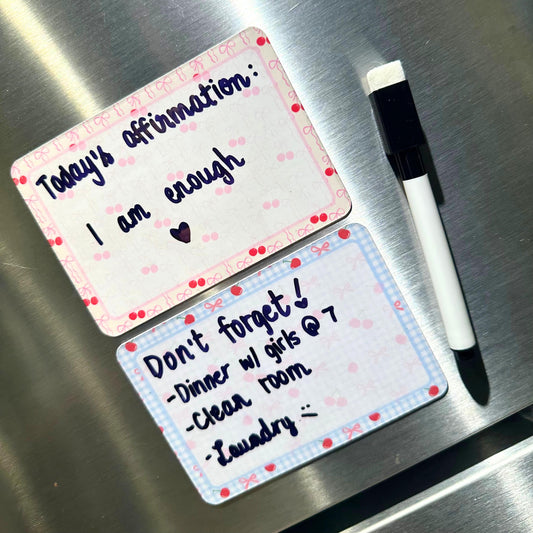 Today's affirmation:
I am enough
♥
Don't forget!
-Dinner w/ girls @ 7
-Clean room
-Laundry :(